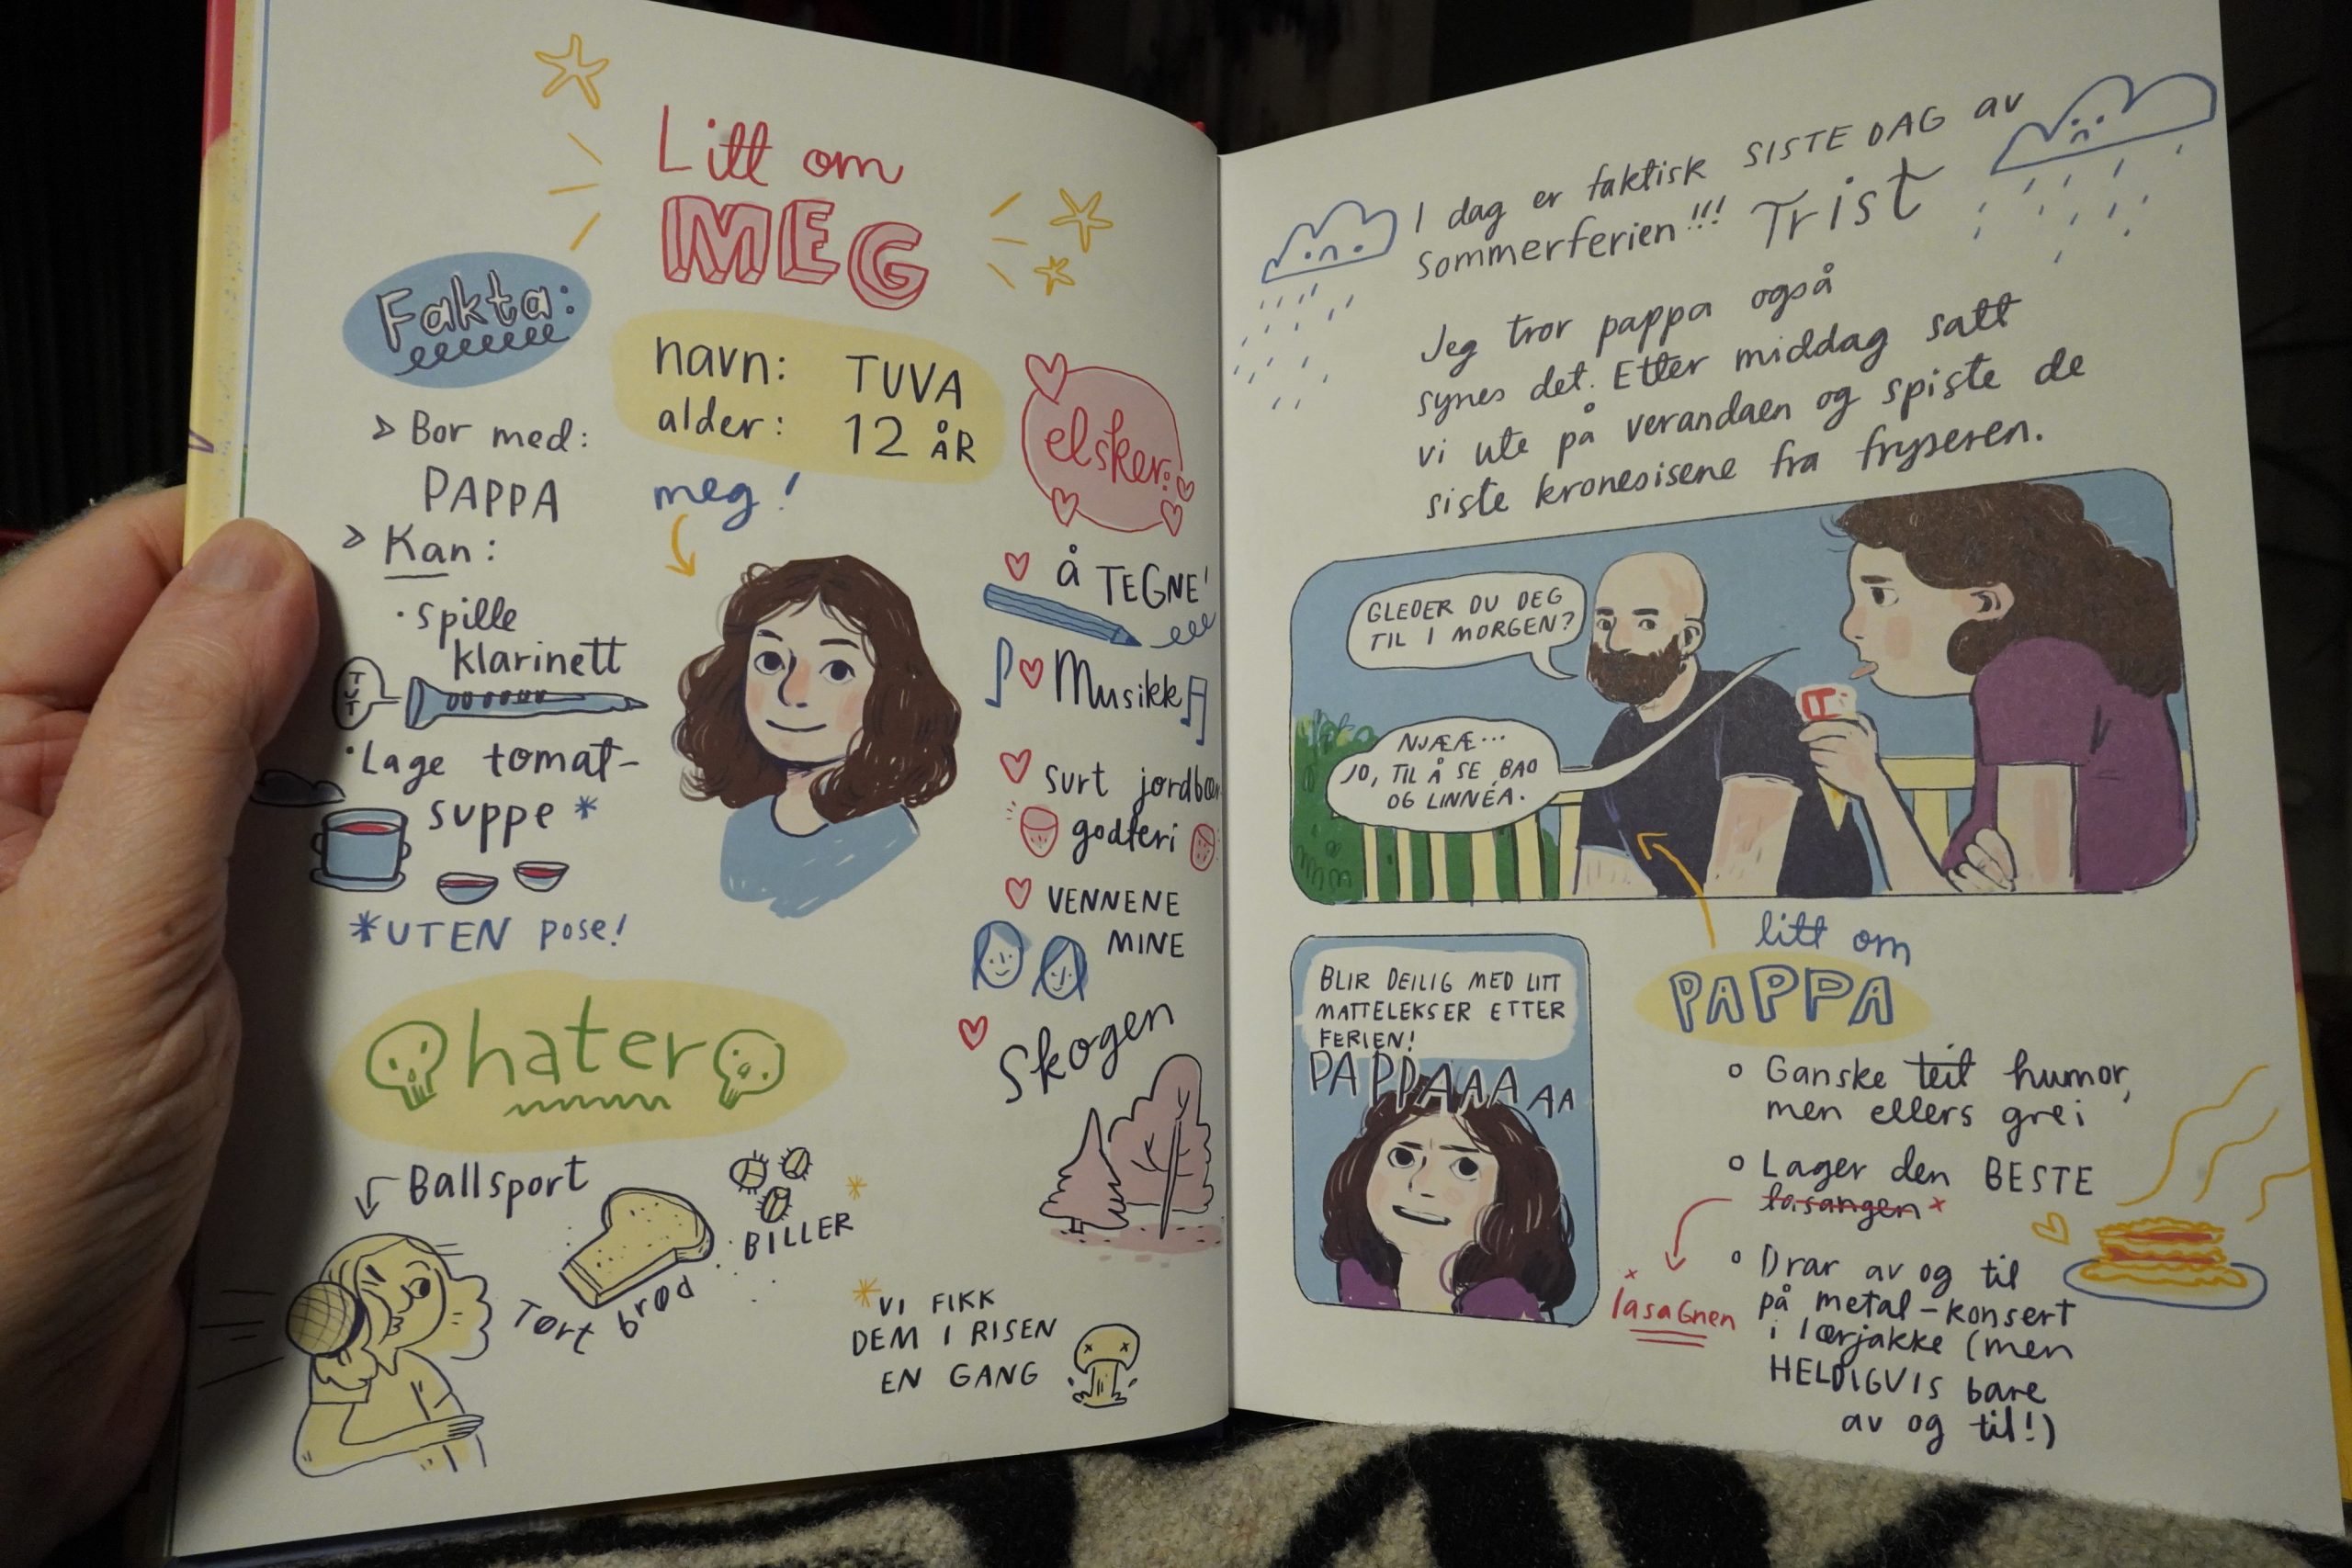 Litt om
MEG
Fakta:
navn: TUVA
alder: 12 ÅR
> Bor med:
PAPPA
> Kan:
· spille
klarinett
TUT
· Lage tomat-
suppe *
*UTEN pose!
meg!
elsker:
å TEGNE!
Musikk
surt jordbær
godteri
VENNENE
MINE
Skogen
hater
Ballsport
Tørt brød
BILLER *
*VI FIKK
DEM I RISEN
EN GANG
I dag er faktisk SISTE DAG av
sommerferien!!! Trist
Jeg tror pappa også
synes det. Etter middag satt
vi ute på verandaen og spiste de
siste kroneisisene fra fryseren.
GLEDER DU DEG
TIL I MORGEN?
NJÆÆ...
JO, TIL Å SE BAO
OG LINNÉA.
BLIR DEILIG MED LITT
MATTELEKSER ETTER
FERIEN!
PAPPAAAAA
litt om
PAPPA
o Ganske teit humor,
men ellers grei
o Lager den BESTE
lasangen x
x lasaGnen
o Drar av og til
på metal-konsert
i lærjakke (men
HELDIGVIS bare
av og til!)